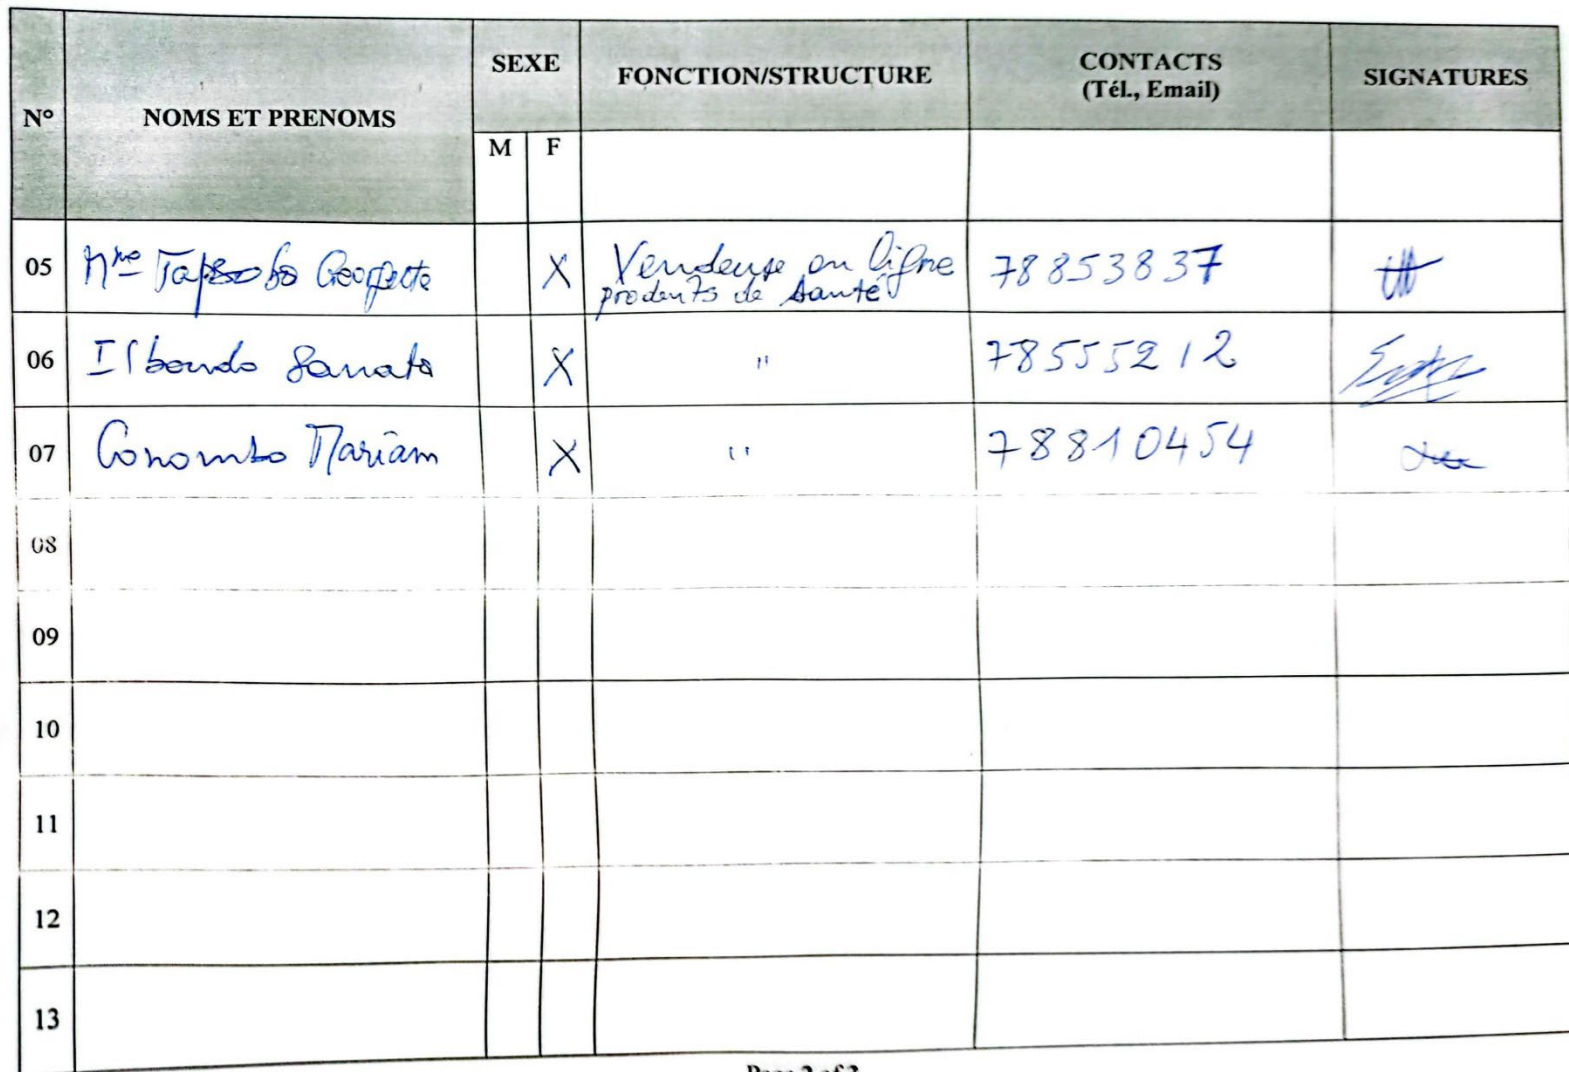 N° NOMS ET PRENOMS SEXE FONCTION/STRUCTURE CONTACTS
(Tél., Email) SIGNATURES
M F
05 Mme Tapsoba Georgette X Vendeuse en ligne
produits de santé 78853837
06 Ilboudo Sanata X " 78555212
07 Conombo Mariam X " 78810454
08
09
10
11
12
13
Page 2 of 3